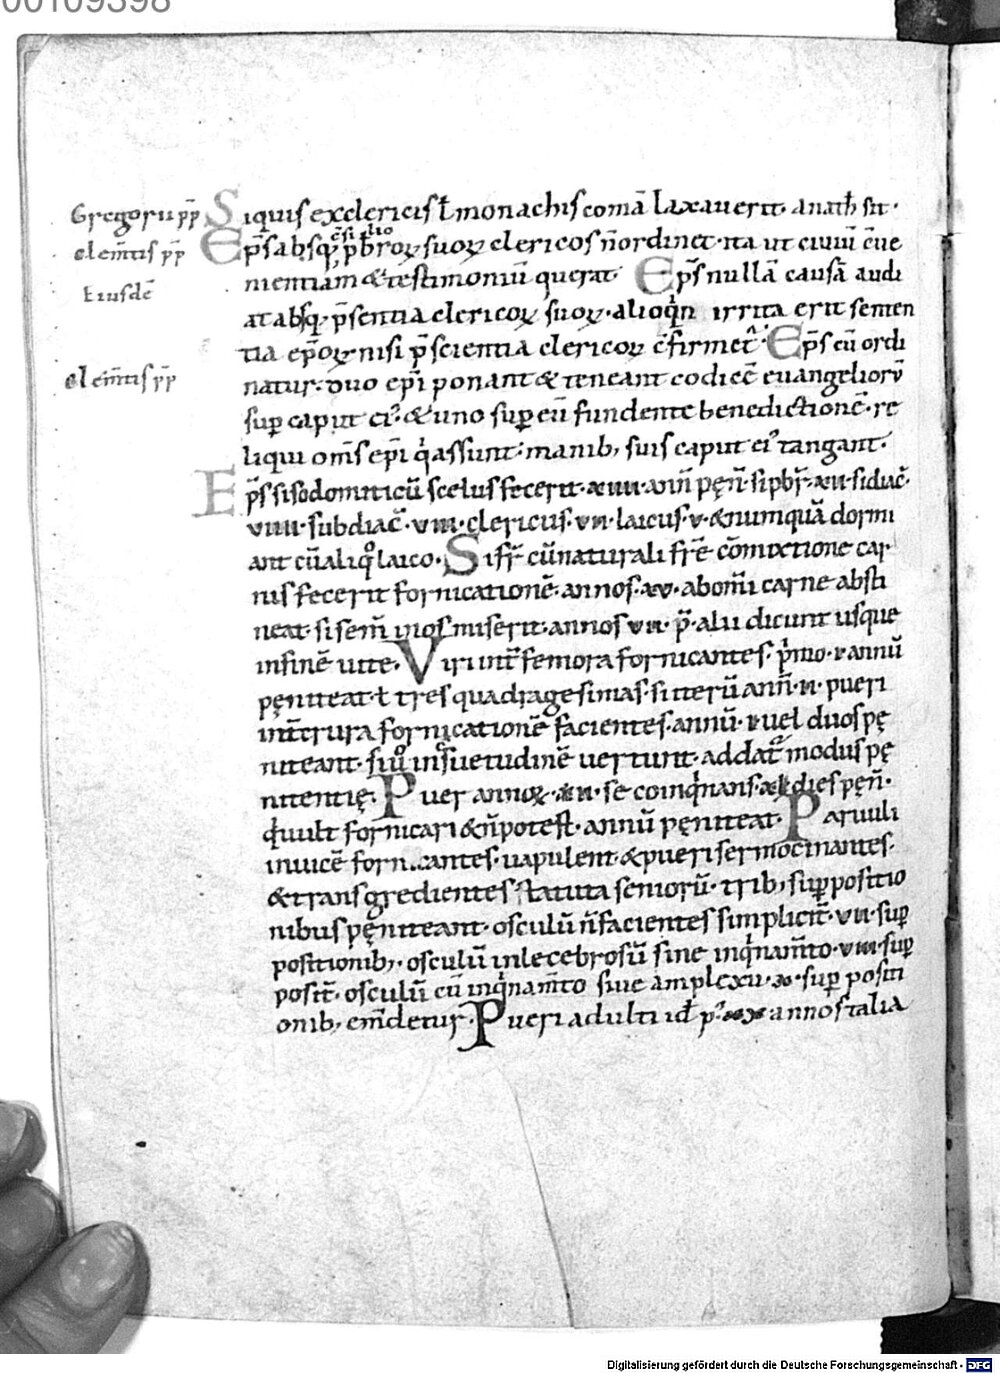 00109398
Gregorii pp Siquis ex clericis ł monachis comā laxauerit· anath̄ sit·
clem̄tis pp Ep̄s absq; c̄silio p̄bro₂ suo₂ clericos n̄ordinet· ita ut ciuiū c̄ue
nientiam & testimoniū querat· Ep̄s nullā causā audi
Eiusdē
at absq; p̄sentia clerico₂ suo₂· alioqⁱn irrita erit senten
tia ep̄o₂ nisi p̄scientia clerico₂ c̄firmet᷑· Ep̄s cū ordi
clem̄tis pp natur· duo ep̄i ponant & teneant codicē euangeliorū
sup̱ caput ei᾽· & uno sup̱ eū fundente benedictionē· re
liqui om̄s ep̄i qⁱ assunt· manib; suis caput ei᾽ tangant·
Ep̄s si sodomiticū scelus fecerit· xiiii· ann̄ pęn̄· si pb̄r· xii· si diac̄·
viiii· subdiac̄· viii· clericus· vii· laicus· v· & numquā dormi
ant cū aliqͦ laico· Si fr̄ cū naturali fr̄e cōmixtione car
nis fecerit fornicationē· annos· xv· ab om̄i carne absti
neat· si sem̄ in os miserit· annos vii· p̄· alii dicunt usque
infinē uite· Viri int̄ femora fornicantes· pⁱmo· i· annū
pęniteat· ł tres quadragesimas· si iterū ann̄· ii· pueri
int̄ crura fornicationē facientes· annū· i· uel duos pę
niteant· si uͦ in c̄suetudinē uertunt· addat᷑ modus pę
nitentię· Puer anno₂· xii· se coinqⁱnans· xl dies pęn̄·
qⁱ uult fornicari & n̄ potest· annū pęniteat· Paruuli
inuicē fornicantes· uapulent· & pueri sermocinantes·
& transgredientes statuta seniorū· trib; sup̱positio
nibus pęniteant· osculū n̄ facientes simplicit᷑· vii· sup̱
positionib;· osculū inlecebrosū sine inqⁱnam̄to· viii· sup̱
posit᷑· osculū cū inqⁱnam̄to siue amplexu· x· sup̱ positi
onib; em̄detur· Pueri adulti id̄ p᾽ xx annos talia
Digitalisierung gefördert durch die Deutsche Forschungsgemeinschaft - DFG